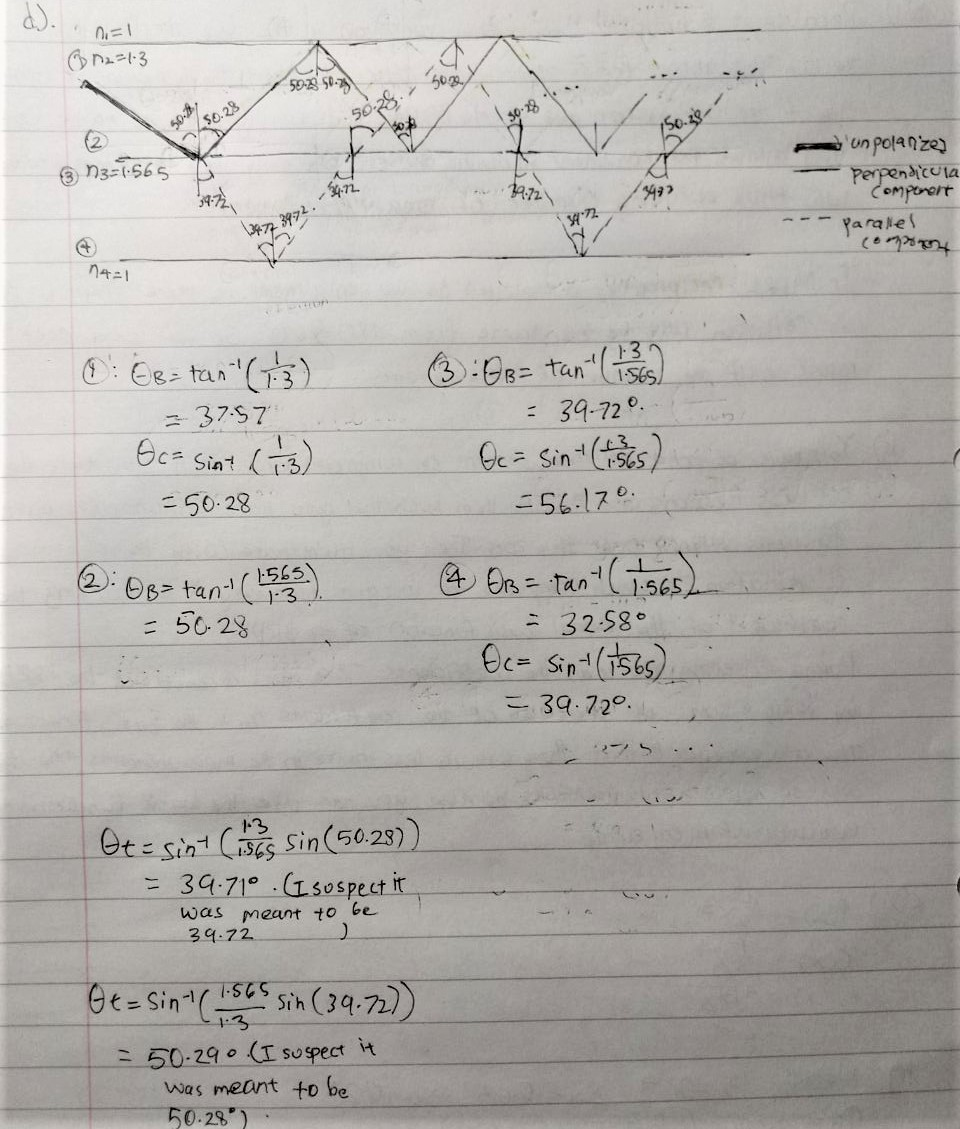 d).
n₁=1
① n₂=1.3
50.28 50.28 50.28 50.28 50.28 50.28 50.28 50.28 50.28
②
③ n₃=1.565
39.72 39.72 39.72 39.72 39.72 39.72 39.72
④
n₄=1
unpolarized
perpendicula
component
parallel
component
①: θB = tan⁻¹(1/1.3)
= 37.57
θc = sin⁻¹(1/1.3)
= 50.28
③: θB = tan⁻¹(1.3/1.565)
= 39.72°.
θc = sin⁻¹(1.3/1.565)
= 56.17°.
②: θB = tan⁻¹(1.565/1.3)
= 50.28
④ θB = tan⁻¹(1/1.565)
= 32.58°
θc = sin⁻¹(1/1.565)
= 39.72°.
θt = sin⁻¹(1.3/1.565 sin(50.28))
= 39.71°. (I suspect it
was meant to be
39.72 )
θt = sin⁻¹(1.565/1.3 sin(39.72))
= 50.29° (I suspect it
was meant to be
50.28°).